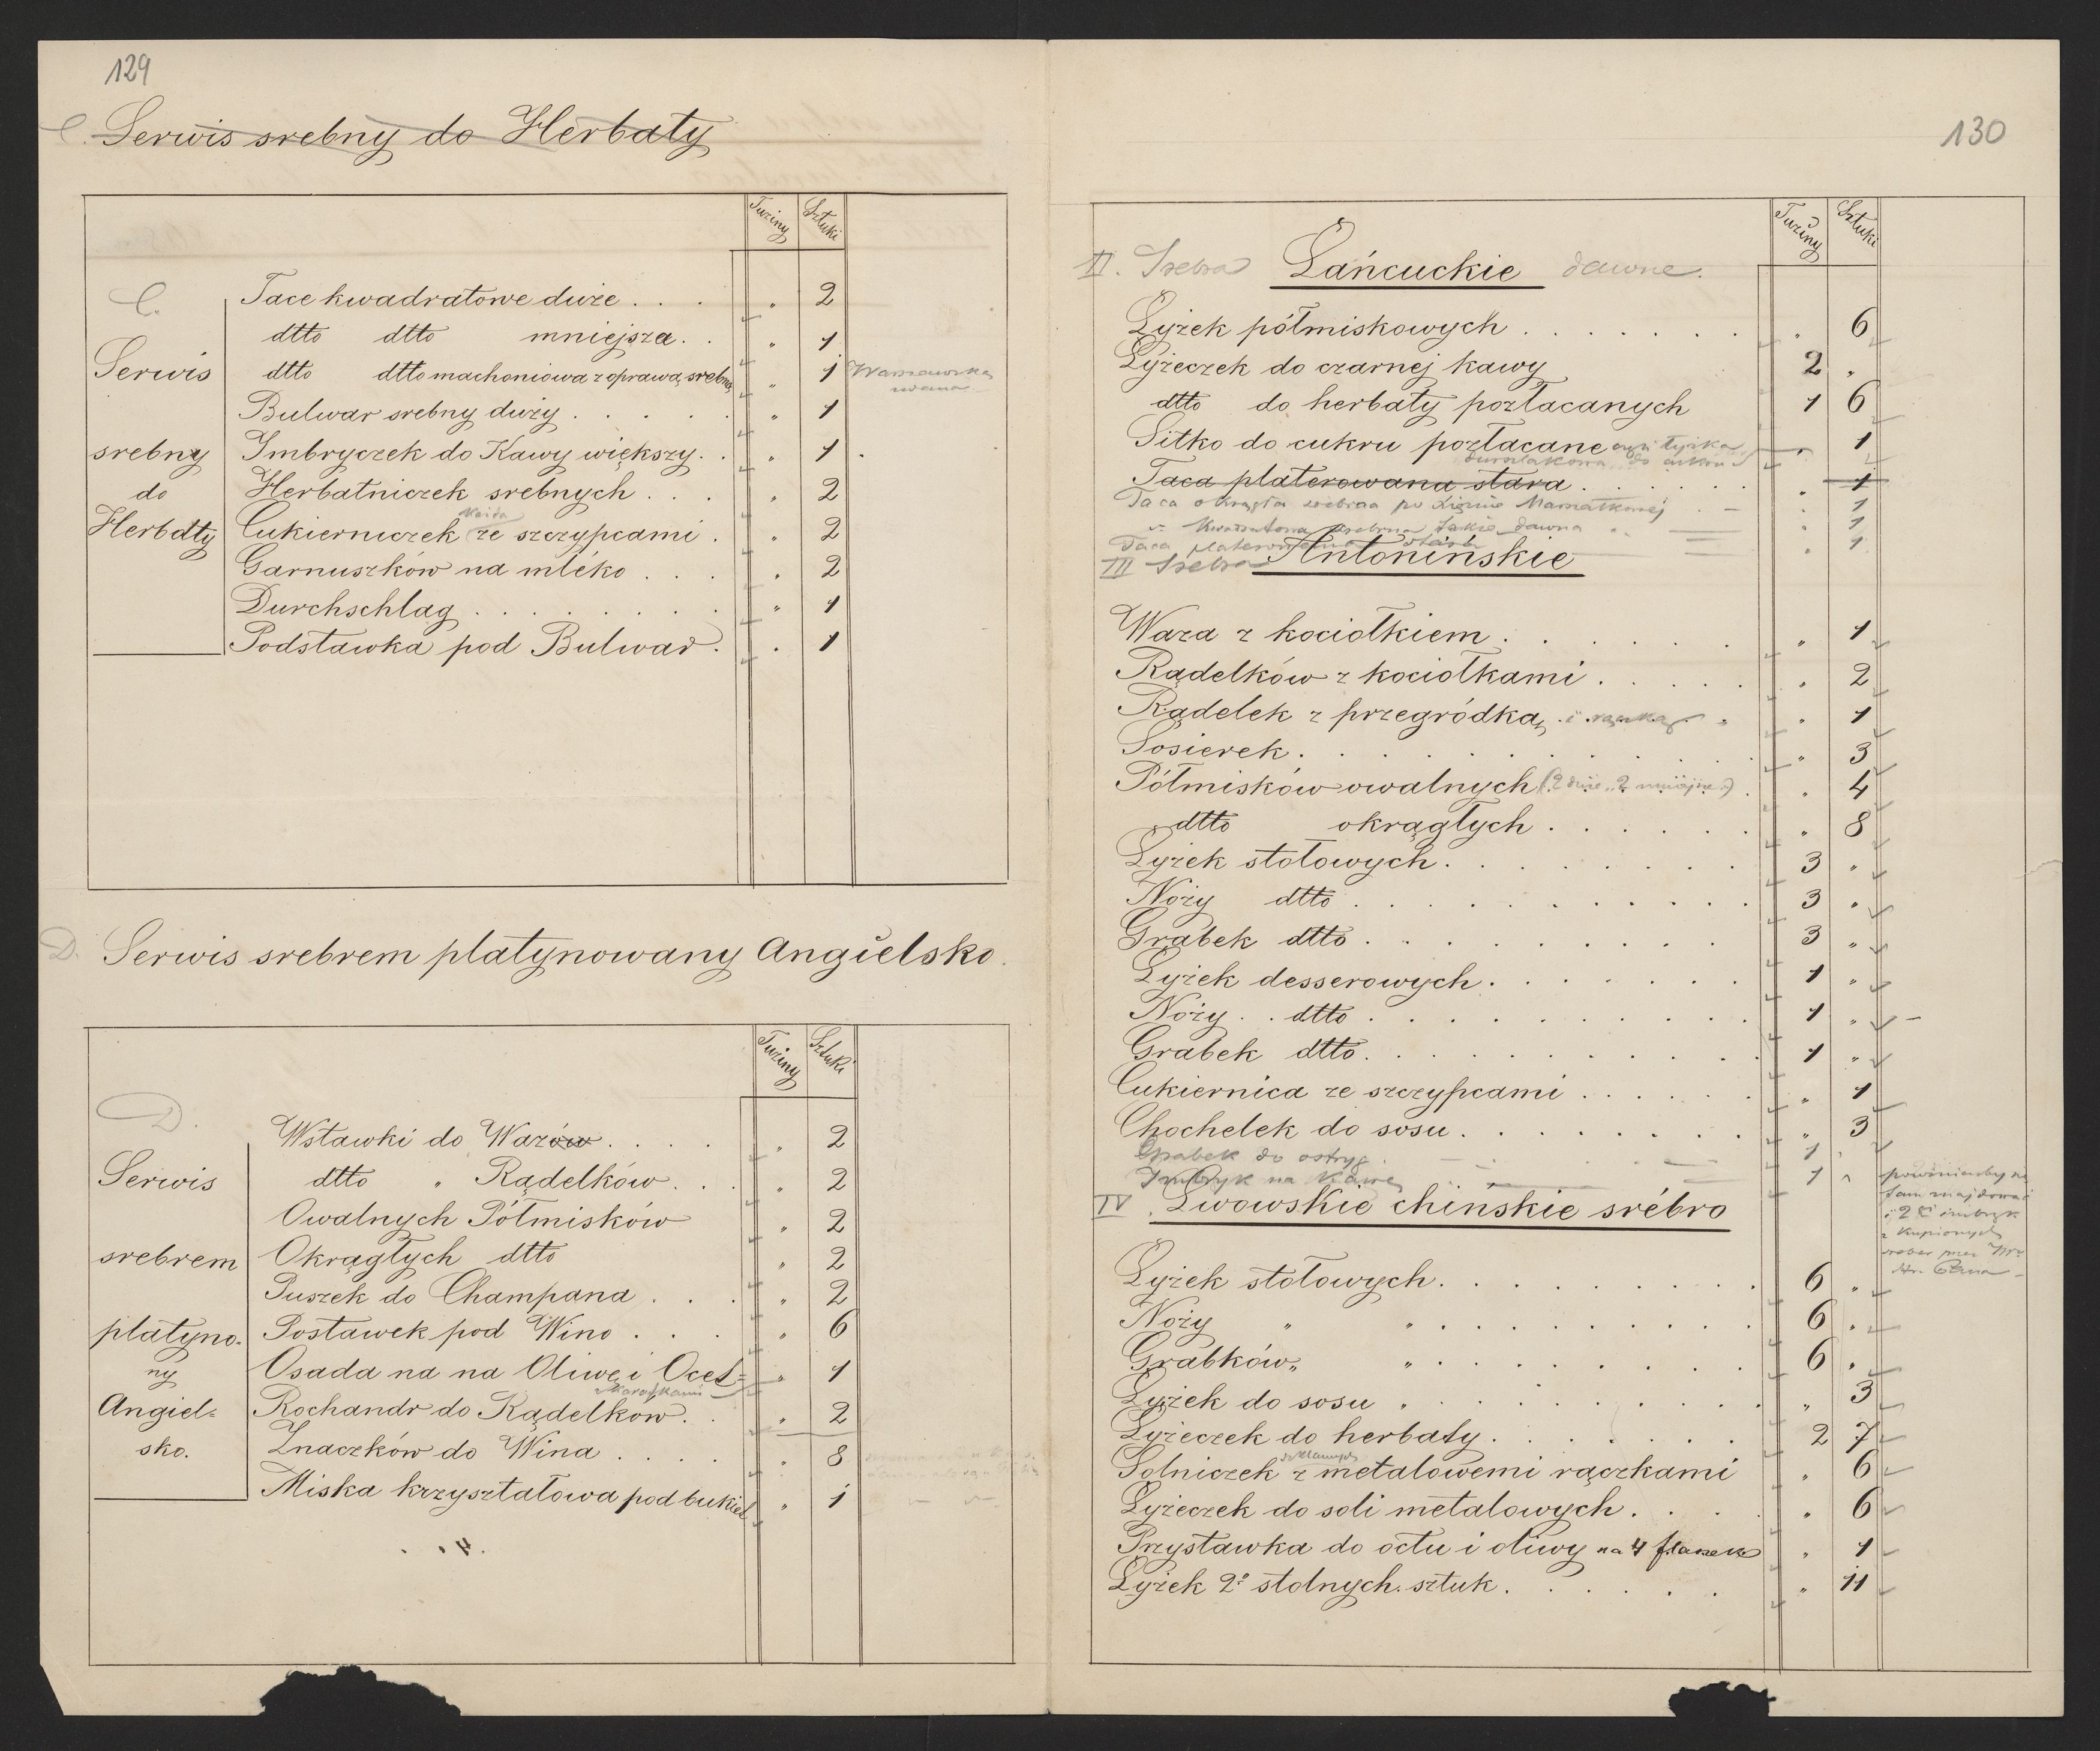 129
C. Serwis srebny do Herbaty
Tuziny Sztuki
C.
Serwis
srebny
do
Herbaty
Tace kwadratowe duże . . . " 2
dtto dtto mniejsza . . " 1
dtto dtto machoniowa z oprawą srebną " 1 Warszawska
Bulwar srebny duży . . . . . " 1
Imbryczek do Kawy większy . . " 1 .
Herbatniczek srebnych . . . " 2
Każda
Cukierniczek ze szczypcami . " 2
Garnuszków na mléko . . . " 2
Durchschlag . . . . . . . " 1
Podstawka pod Bulwar . . 1
D. Serwis srebrem platynowany Angielsko.
Tuziny Sztuki
D.
Serwis
srebrem
platyno-
ny
Angiel=
sko.
Wstawki do Wazów . . . . " 2
dtto " Rądelków . . . " 2
Owalnych Półmisków " 2
Okrągłych dtto " 2
Puszek do Champana . . . " 2
Postawek pod Wino . . . " 6
Osada na na Oliwę i Ocet= " 1
z Karafkami
Rochandr do Rądelków . . " 2
Znaczków do Wina . . . . " 8
Miska kryształowa pod bukiet " 1
130
Tuziny Sztuki
II. Srebra Łańcuckie dawne.
Łyżek półmiskowych . . . . . . . " 6
Łyżeczek do czarnej kawy 2 "
dtto do herbaty pozłacanych 1 6
Sitko do cukru pozłacane czyli łyżka " 1
durszlakowa do cukru
Taca platerowana stara . . . . . . " 1
Taca okrągła srebrna po Mamatkowej . - " 1
" Kwadratowa srebrna także dawna " 1
Taca platerowana stara " 1
III Srebra Antonińskie
Waza z kociołkiem . . . . . . . " 1
Rądelków z kociołkami . . . . . " 2
Rądelek z przegródką i rączką " " 1
Sosierek . . . . . . . . . . " 3
Półmisków owalnych (2 duże, 2 mniejsze) . " 4
dtto okrągłych . . . . . . " 8
Łyżek stołowych . . . . . . . . 3 "
Noży dtto . . . . . . . . . . . 3 "
Grabek dtto . . . . . . . . . 3 "
Łyżek desserowych . . . . . . . 1 "
Noży . . dtto . . . . . . . . . . 1 " -
Grabek dtto . . . . . . . . . . . 1 "
Cukiernica ze szczypcami . . . . . . " 1
Chochelek do sosu . . . . . . . . " 3
Grabek do ostryg . 1 .
Imbryk na Kawę 1 "
powinienby się
tam znajdować
i 2gi imbryk
z kupionych
sreber przez
IV. Lwowskie chinskie srébro
Łyżek stołowych . . . . . . . . . 6 "
Noży " " . . . . . . . . . . 6 "
Grabków " " . . . . . . . . . 6 "
Łyżek do sosu " . . . . . . . . . " 3
Łyżeczek do herbaty . . . . . . . 2 7
szklannych
Solniczek z metalowemi rączkami " 6
Łyżeczek do soli metalowych . . . . " 6
Przystawka do octu i oliwy na 4 flaszek " 1
Łyżek 2º stolnych sztuk . . . . . . " 11